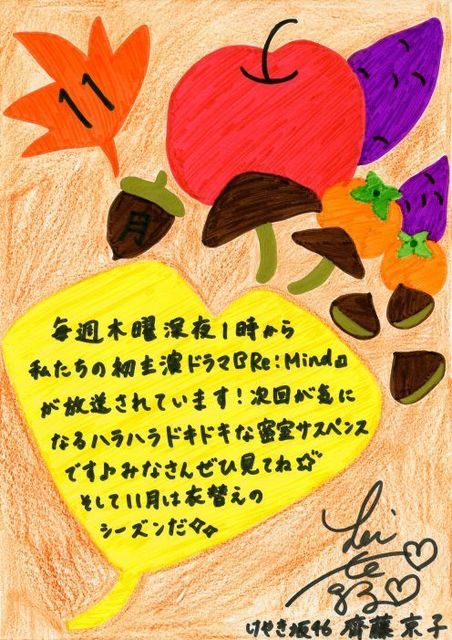 11
月
毎週木曜深夜1時から
私たちの初主演ドラマ『Re:Mind』
が放送されています!次回が気に
なるハラハラドキドキな密室サスペンス
です♪みなさんぜひ見てね☆
そして11月は衣替えの
シーズンだ☆☆
けやき坂46 齊藤京子